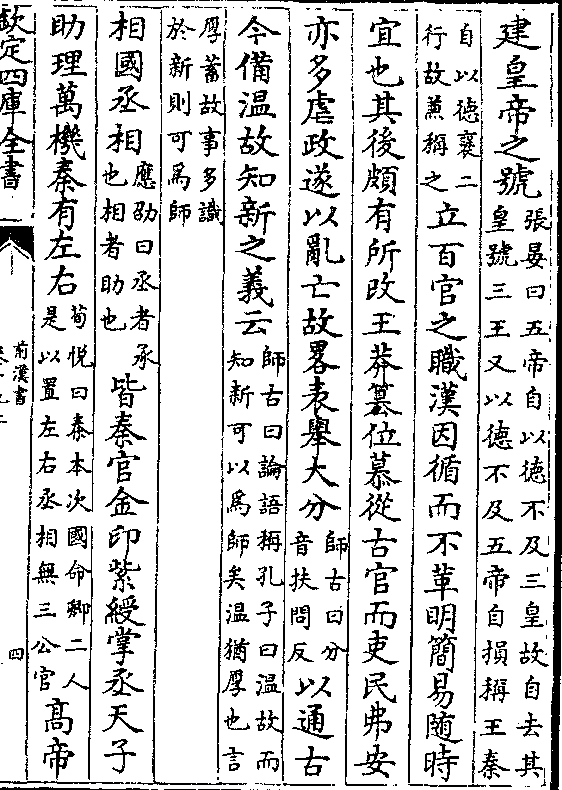 建皇帝之號張晏曰五帝自以德不及三皇故自去其
皇號三王又以德不及五帝自損稱王秦
自以德襃二
行故兼稱之立百官之職漢因循而不革明簡易隨時
宜也其後頗有所改王莽篡位慕從古官而吏民弗安
亦多虐政遂以亂亡故畧表舉大分師古曰分
音扶問反以通古
今備温故知新之義云師古曰論語稱孔子曰温故而
知新可以為師矣温猶厚也言
厚蓄故事多識
於新則可為師
相國丞相應劭曰丞者承
也相者助也皆秦官金印紫綬掌丞天子
助理萬機秦有左右荀悦曰秦本次國命卿二人
是以置左右丞相無三公官高帝
欽定四庫全書
前漢書
四